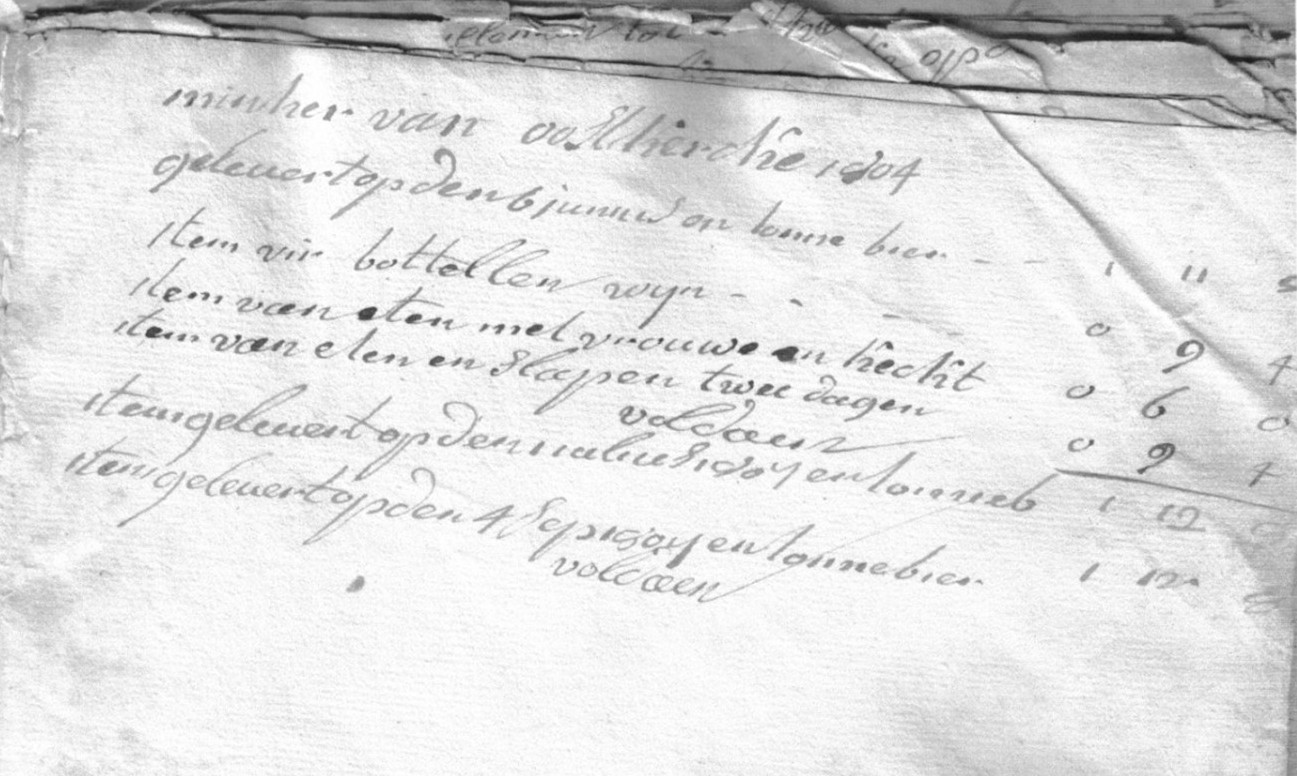 tot
minher van oostkercke 1804
gelevert op den 6 junius en tonne bier - - 1 11
item vir bottellen wyn - - 0 9 4
item van eten met vrouwe en knecht 0 6 0
item van eten en slapen twee dagen 0 9 4
voldaen
item gelevert op den 1804 en tonne b 1 12
item gelevert op den 4 sep 1804 en tonne bier 1 12
voldaen